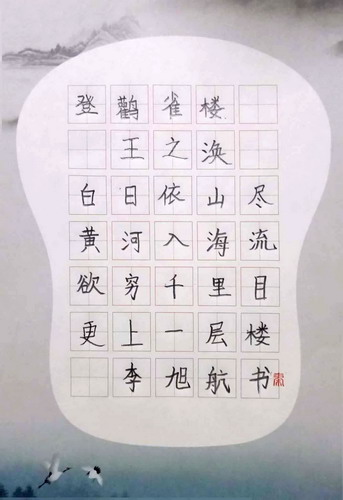 登鹳雀楼
王之涣
白日依山尽
黄河入海流
欲穷千里目
更上一层楼
李旭航书